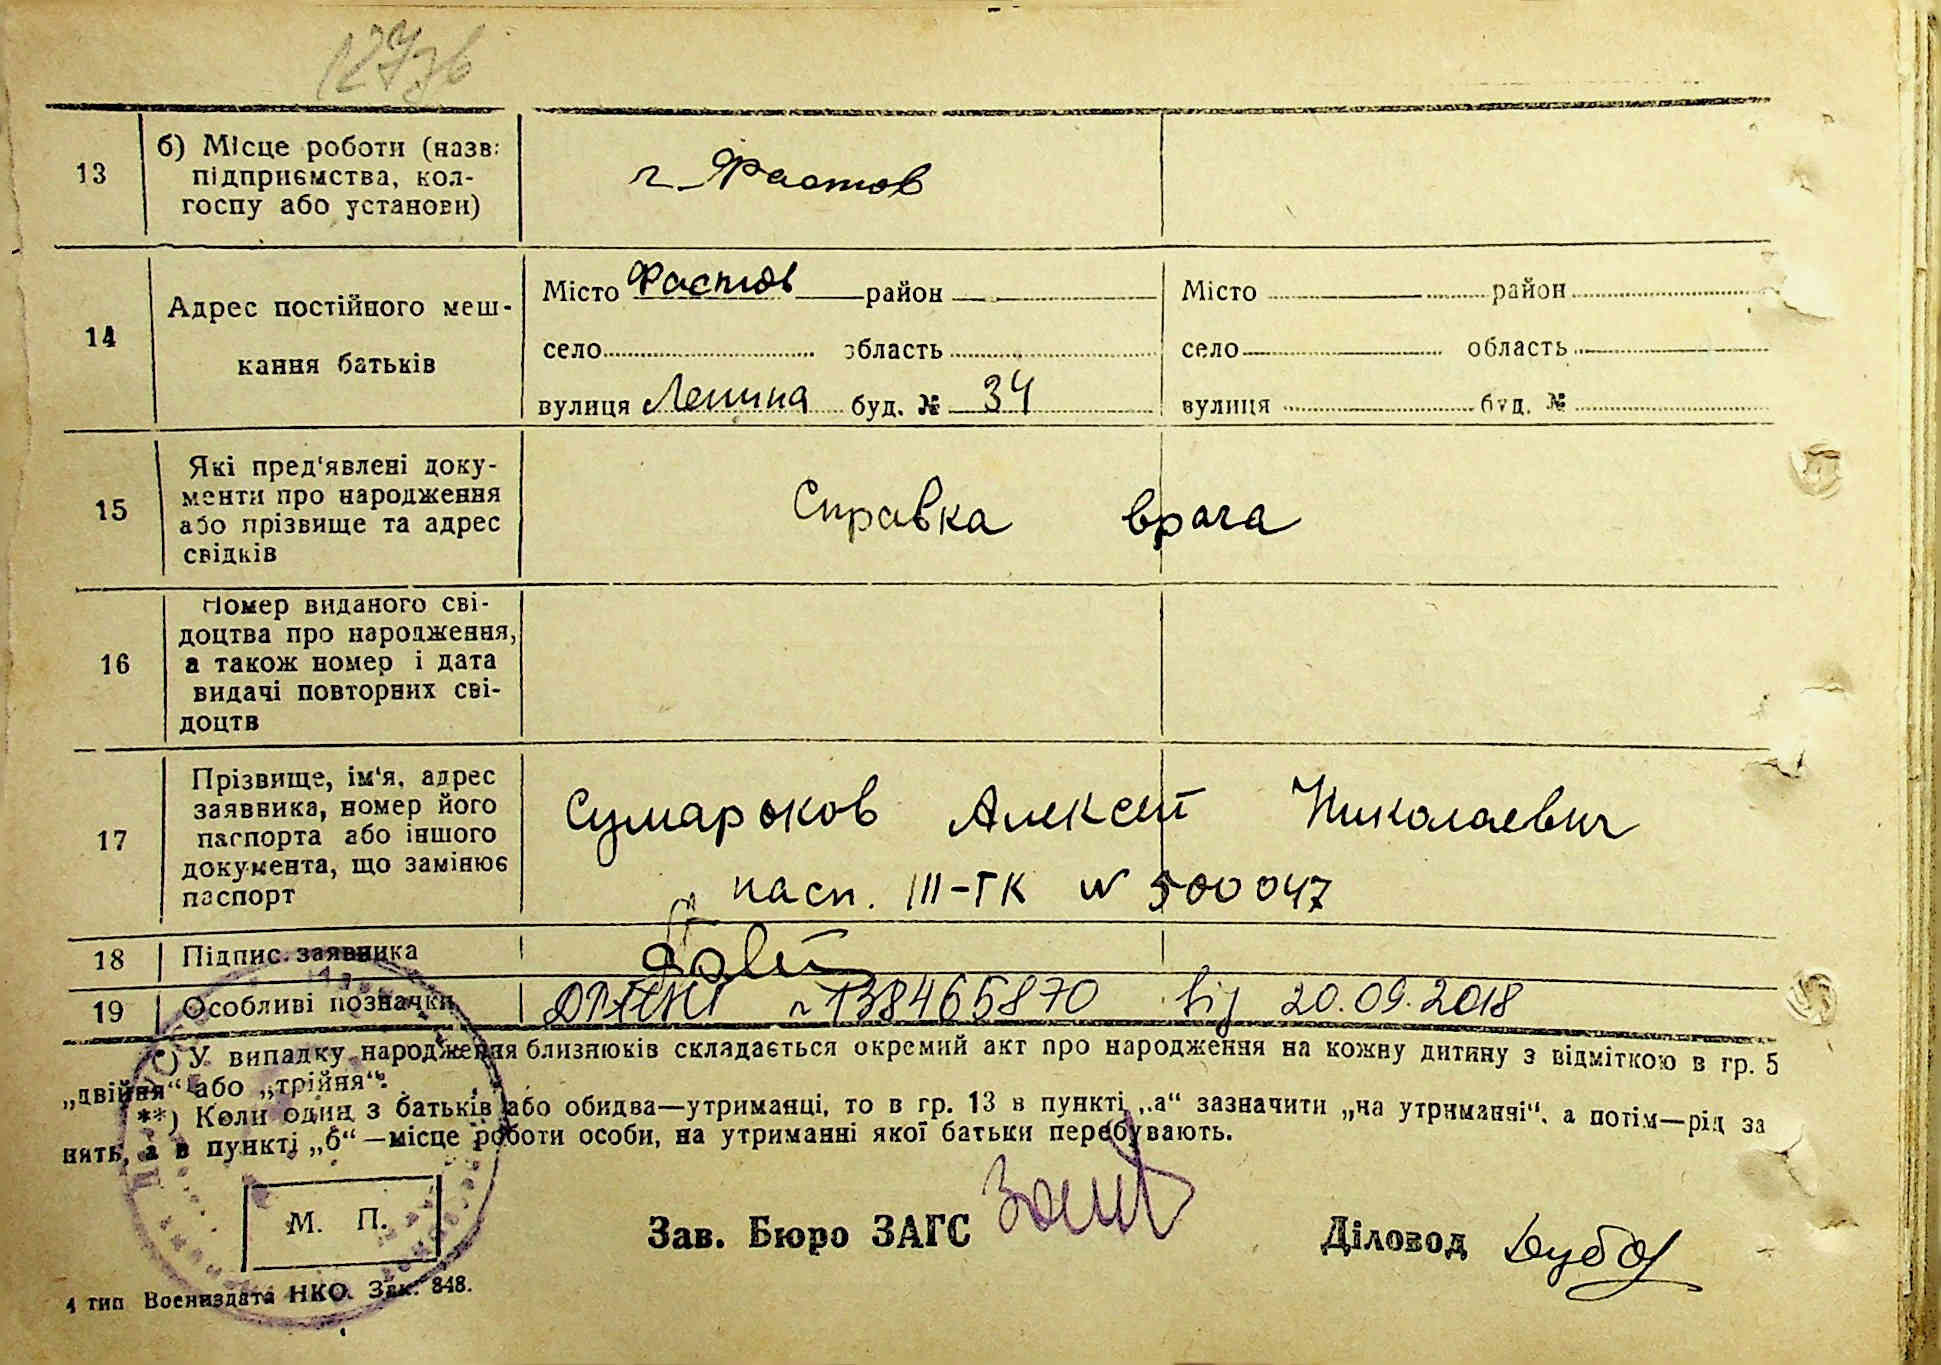 127зв
13
б) Місце роботи (назв:
підприємства, кол-
госпу або установи)
г. Фастов
14
Адрес постійного меш-
кання батьків
Місто Фастов район
село область
вулиця Ленина буд. № 34
Місто район
село область
вулиця буд. №
15
Які пред'явлені доку-
менти про народження
або прізвище та адрес
свідків
Справка врача
16
Номер виданого сві-
доцтва про народження,
а також номер і дата
видачі повторних сві-
доцтв
17
Прізвище, ім'я, адрес
заявника, номер його
паспорта або іншого
документа, що замінює
паспорт
Сумароков Алексей Николаевич
пасп. III-ГК N 500047
18
Підпис заявника
19
Особливі позначки
138465870 від 20.09.2018
*) У випадку народження близнюків складається окремий акт про народження на кожну дитину з відміткою в гр. 5
„двійня“ або „трійня“.
**) Коли один з батьків або обидва—утриманці, то в гр. 13 в пункті „а“ зазначити „на утриманні“, а потім—рід за
нять, а в пункті „б“—місце роботи особи, на утриманні якої батьки перебувають.
М. П.
Зав. Бюро ЗАГС
Діловод
4 тип Воениздата НКО. Зак. 848.